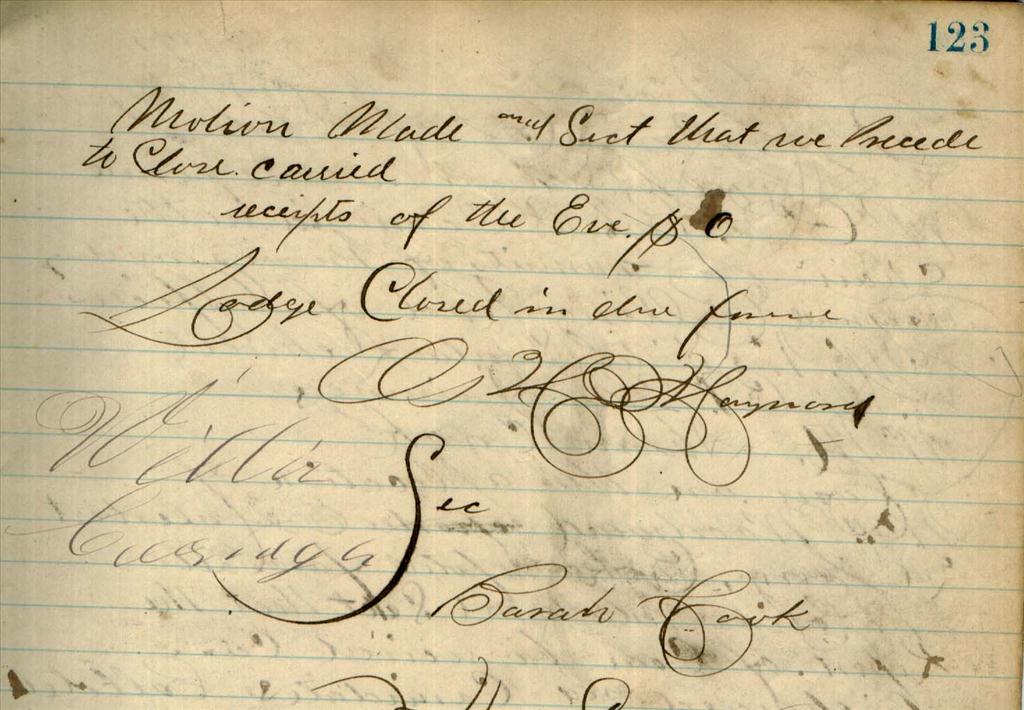 123
Motion Made and Sect that we Precede
to Close. carried
receipts of the Eve. $0
Lodge Closed in due forme
Maynard
Willie
Sec
Sarah Cook